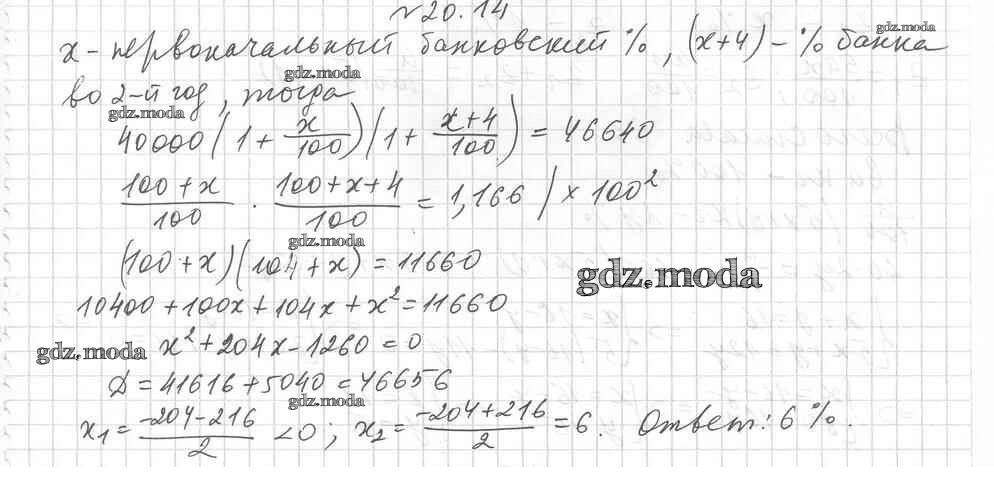 №20.14
x - первоначальный банковский %, (x+4) - % банка
gdz.moda
во 2-й год, тогда
gdz.moda
gdz.moda
40000(1 + x/100)(1 + x+4/100) = 46640
100+x/100 · 100+x+4/100 = 1,166 / × 100²
gdz.moda
(100+x)(104+x) = 11660
gdz.moda
10400+100x+104x+x²=11660
gdz.moda
x²+204x-1260=0
D=41616+5040=46656
gdz.moda
x₁= -204-216/2 <0; x₂= -204+216/2 =6. Ответ: 6%.